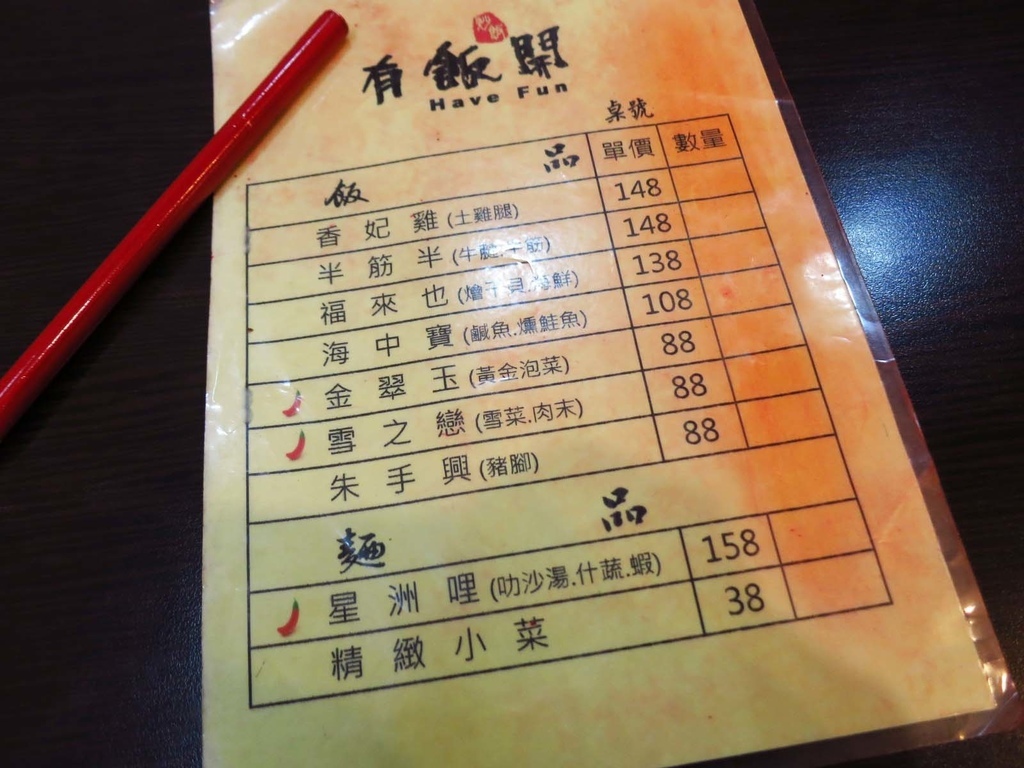 有飯開
Have Fun
桌號
飯品 單價 數量
香妃雞(土雞腿) 148
半筋半(牛腱.牛筋) 148
福來也(燴干貝.海鮮) 138
海中寶(鹹魚.燻鮭魚) 108
金翠玉(黃金泡菜) 88
雪之戀(雪菜.肉末) 88
朱手興(豬腳) 88
麵品
星洲哩(叻沙湯.什蔬.蝦) 158
精緻小菜 38